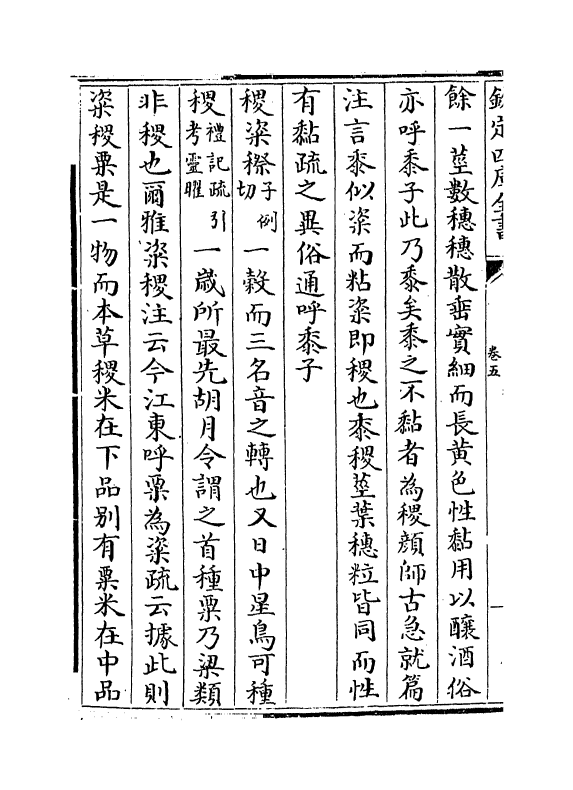 欽定四庫全書
卷五
一
餘一莖數穗穗散垂實細而長黄色性黏用以釀酒俗
亦呼黍子此乃黍矣黍之不黏者為稷顔師古急就篇
注言黍似粢而粘粢即稷也黍稷莖葉穗粒皆同而性
有黏疏之異俗通呼黍子
稷粢穄子例切一穀而三名音之轉也又日中星鳥可種
稷禮記疏引考靈曜一歳所最先胡月令謂之首種粟乃粱類
非稷也爾雅粢稷注云今江東呼粟為粢疏云據此則
粢稷粟是一物而本草稷米在下品别有粟米在中品